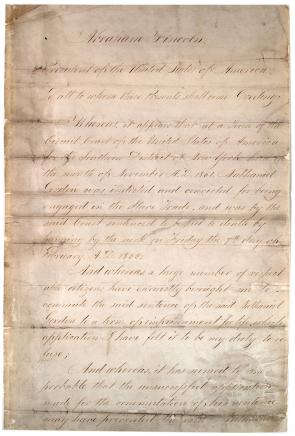 Abraham Lincoln,
President of the United States of America,
To all to whom these Presents shall come Greeting:
Whereas, it appears that at a Term of the
Circuit Court of the United States of America
for the Southern District of New York
the month of November A.D. 1861, Nathaniel
Gordon was indicted and convicted for being
engaged in the Slave Trade, and was by the
said Court sentenced to be put to death by
hanging by the neck on Friday the 7th day of
February, A.D. 1862;
And whereas, a large number of respect-
able citizens have earnestly besought me to com-
mute the said sentence of the said Nathaniel
Gordon to a term of imprisonment for life, which
application I have felt it to be my duty to re-
fuse;
And whereas, it has seemed to me
probable that the unsuccessful application
made for the commutation of his sentence
may have prevented the said Nathaniel